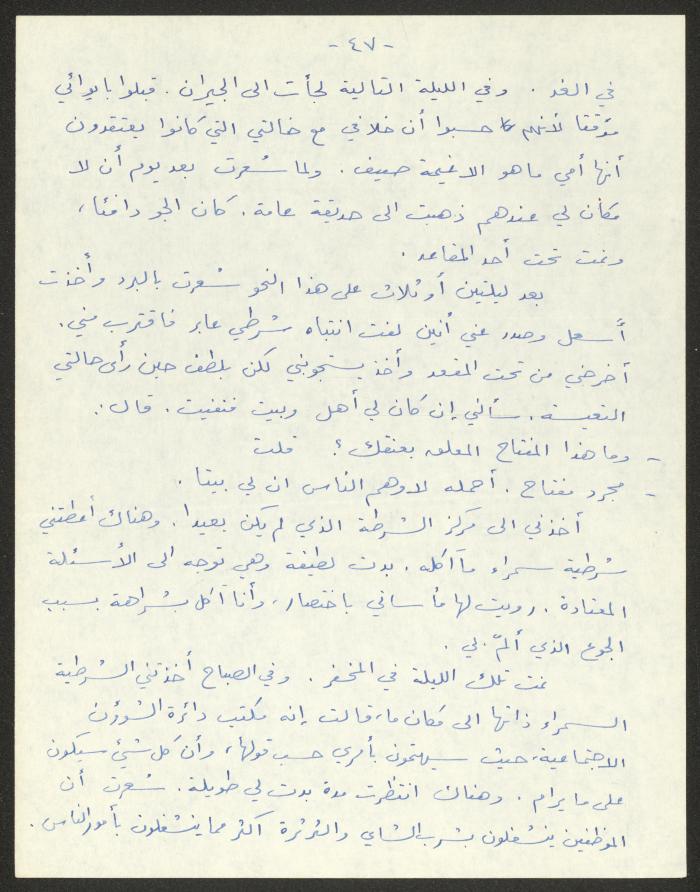 - ٤٧ -
في الغد . وفي الليلة التالية لجأت الى الجيران . قبلوا بايوائي
مؤقتا لأنهم حسبوا أن خلافي مع خالتي التي كانوا يعتقدون
أنها أمي ما هو الا غيمة صيف . ولما شعرت بعد يوم أن لا
مكان لي عندهم ذهبت الى حديقة عامة . كان الجو دافئا ،
ونمت تحت أحد المقاعد .
بعد ليلتين أو ثلاث على هذا النحو شعرت بالبرد وأخذت
أسعل وصدر عني أنين لفت انتباه شرطي عابر فاقترب مني .
أخرجني من تحت المقعد وأخذ يستجوبني لكن بلطف حين رأى حالتي
التعيسة . سألني إن كان لي أهل وبيت فنفيت . قال :
- وما هذا المفتاح المعلق بعنقك ؟ قلت
- مجرد مفتاح . أحمله لاوهم الناس ان لي بيتا .
أخذني الى مركز الشرطة الذي لم يكن بعيدا . وهناك أعطتني
شرطية سمراء ما آكله . بدت لطيفة وهي توجه الى الأسئلة
المعتادة . رويت لها مأساتي باختصار ، وأنا آكل بشراهة بسبب
الجوع الذي ألمّ بي .
نمت تلك الليلة في المخفر . وفي الصباح أخذتني الشرطية
السمراء ذاتها الى مكان ما ، قالت إنه مكتب دائرة الشؤون
الاجتماعية ، حيث سيهتمون بأمري حسب قولها ، وأن كل شيء سيكون
على ما يرام . وهناك انتظرت مدة بدت لي طويلة . شعرت أن
الموظفين ينشغلون بشرب الشاي والثرثرة أكثر مما ينشغلون بأمور الناس .